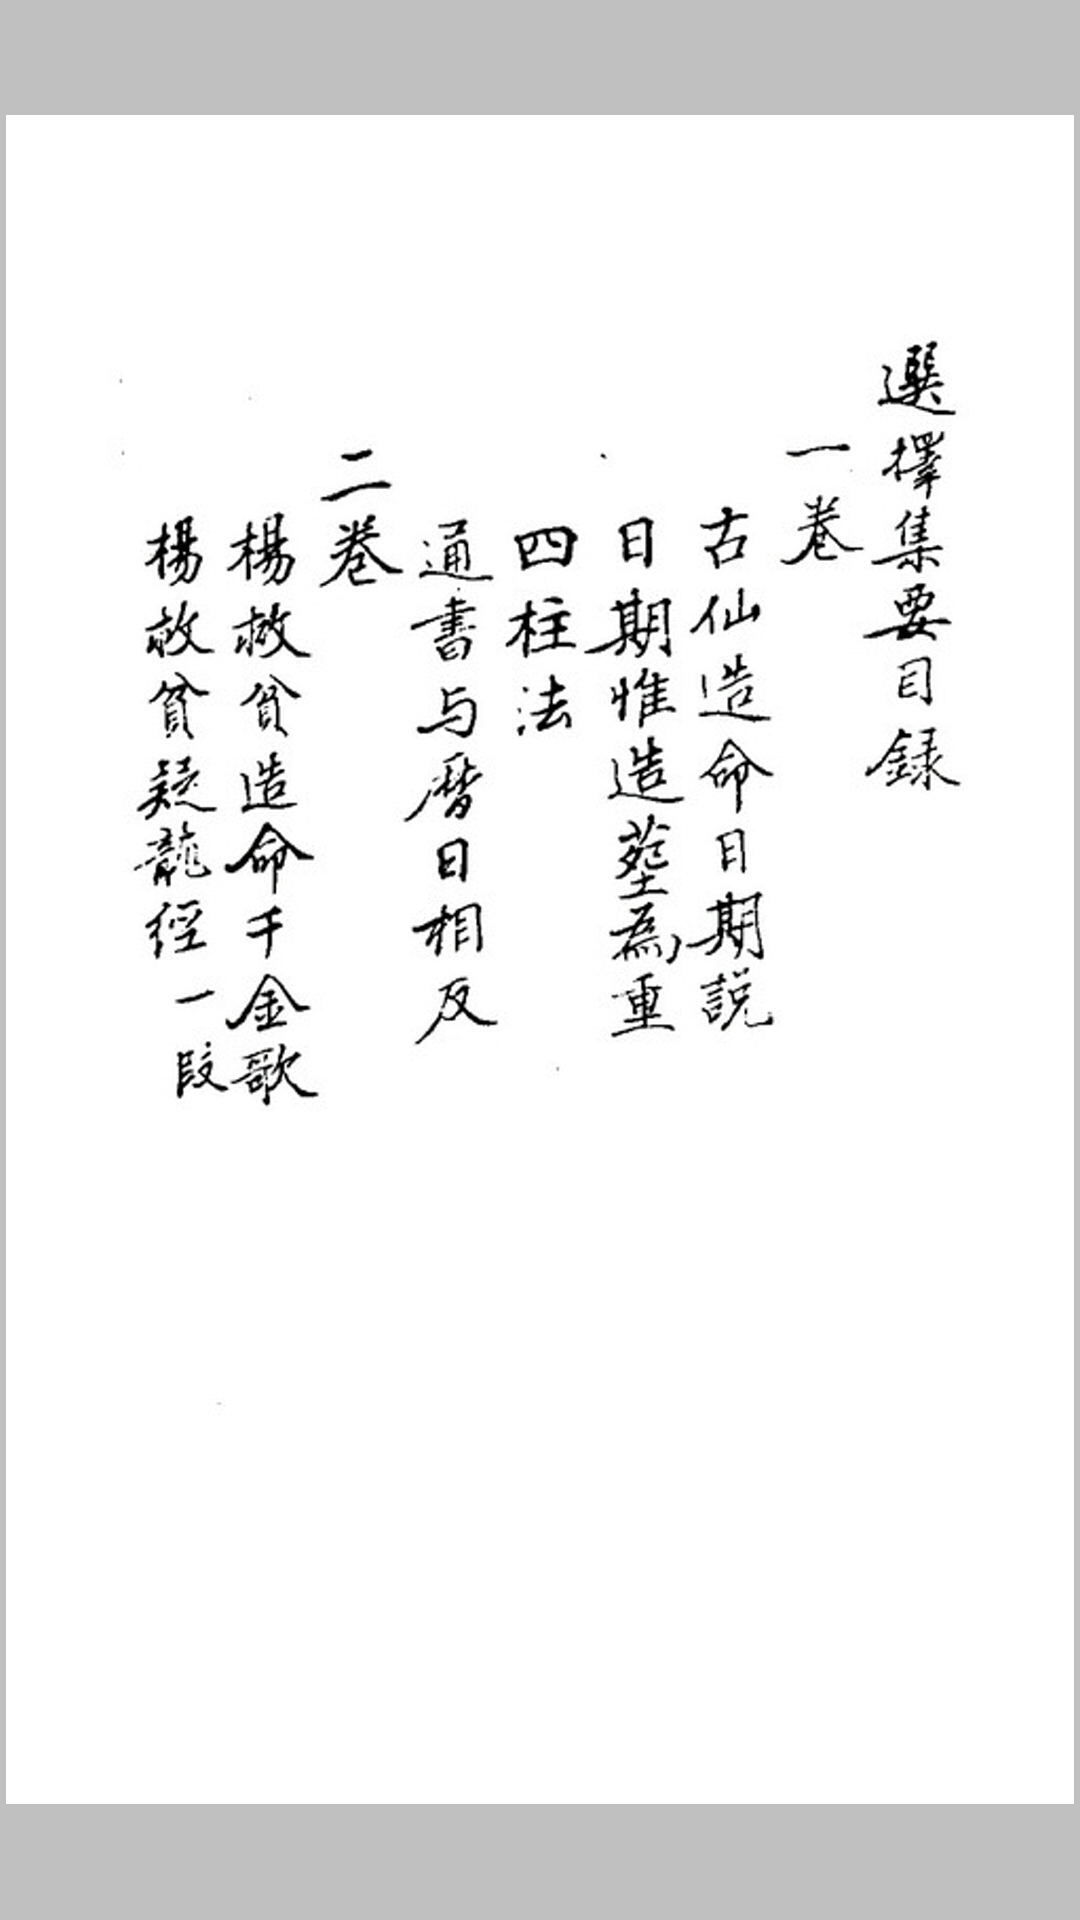 選擇集要目録
一卷
古仙造命日期説
日期惟造塟為重
四柱法
通書与暦日相反
二卷
楊救貧造命千金歌
楊救貧疑龍經一段